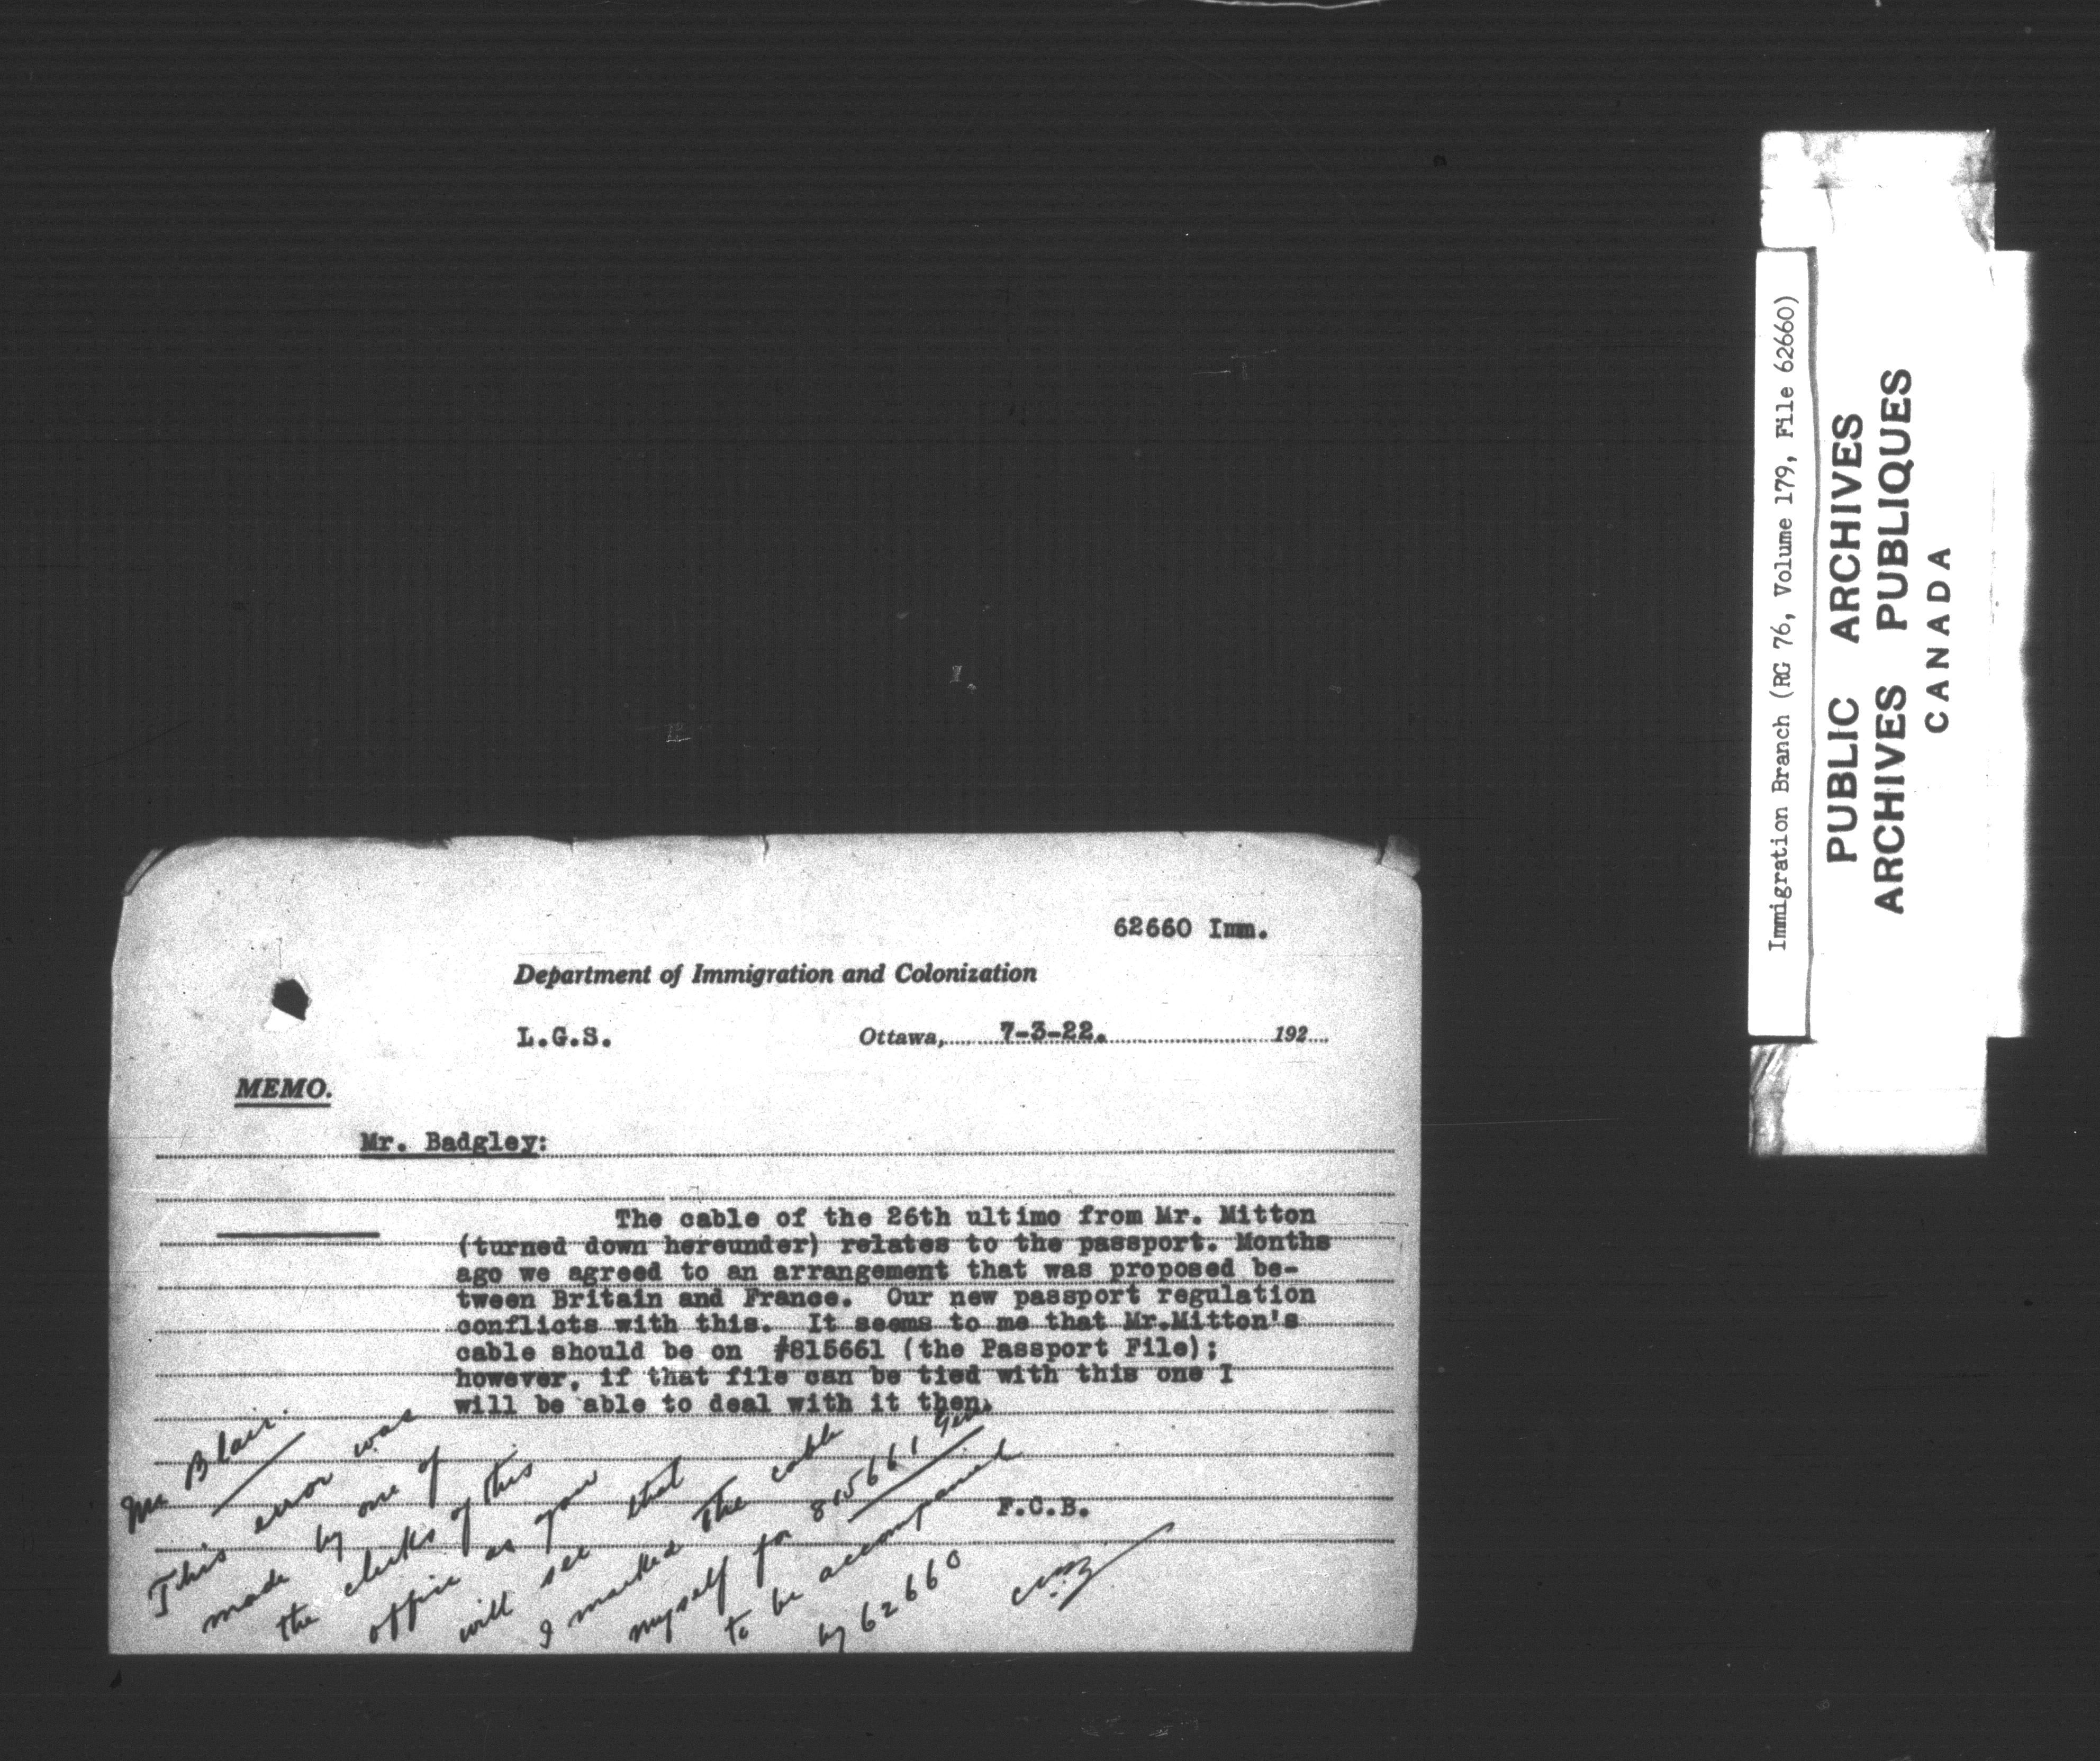 62660 Imm.
Department of Immigration and Colonization
L.G.S. Ottawa, 7-3-22. 192
MEMO.
Mr. Badgley:
The cable of the 26th ultimo from Mr. Mitton
(turned down hereunder) relates to the passport. Months
ago we agreed to an arrangement that was proposed be-
tween Britain and France. Our new passport regulation
conflicts with this. It seems to me that Mr.Mitton's
cable should be on #815661 (the Passport File);
however, if that file can be tied with this one I
will be able to deal with it then.
F.C.B.
Mr. Blair.
This error was
made by one of
the clerks of this
office as you
will see that
I marked the cable
myself for 815661
to be accompanied
by 62660
Immigration Branch (RG 76, Volume 179, File 62660)
PUBLIC ARCHIVES
ARCHIVES PUBLIQUES
CANADA